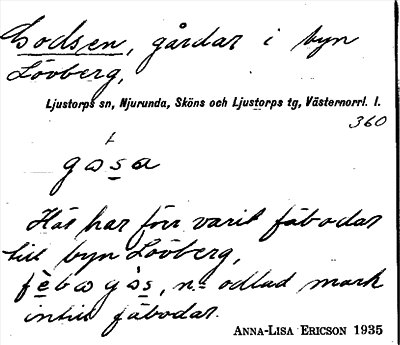 Godsen, gårdar i byn
Lövberg,
Ljustorps sn, Njurunda, Sköns och Ljustorps tg, Västernorrl. l.
360
Här har förr varit fäbodar
till byn Lövberg,
n. odlad mark
intill fäbodar.
ANNA-LISA ERICSON 1935